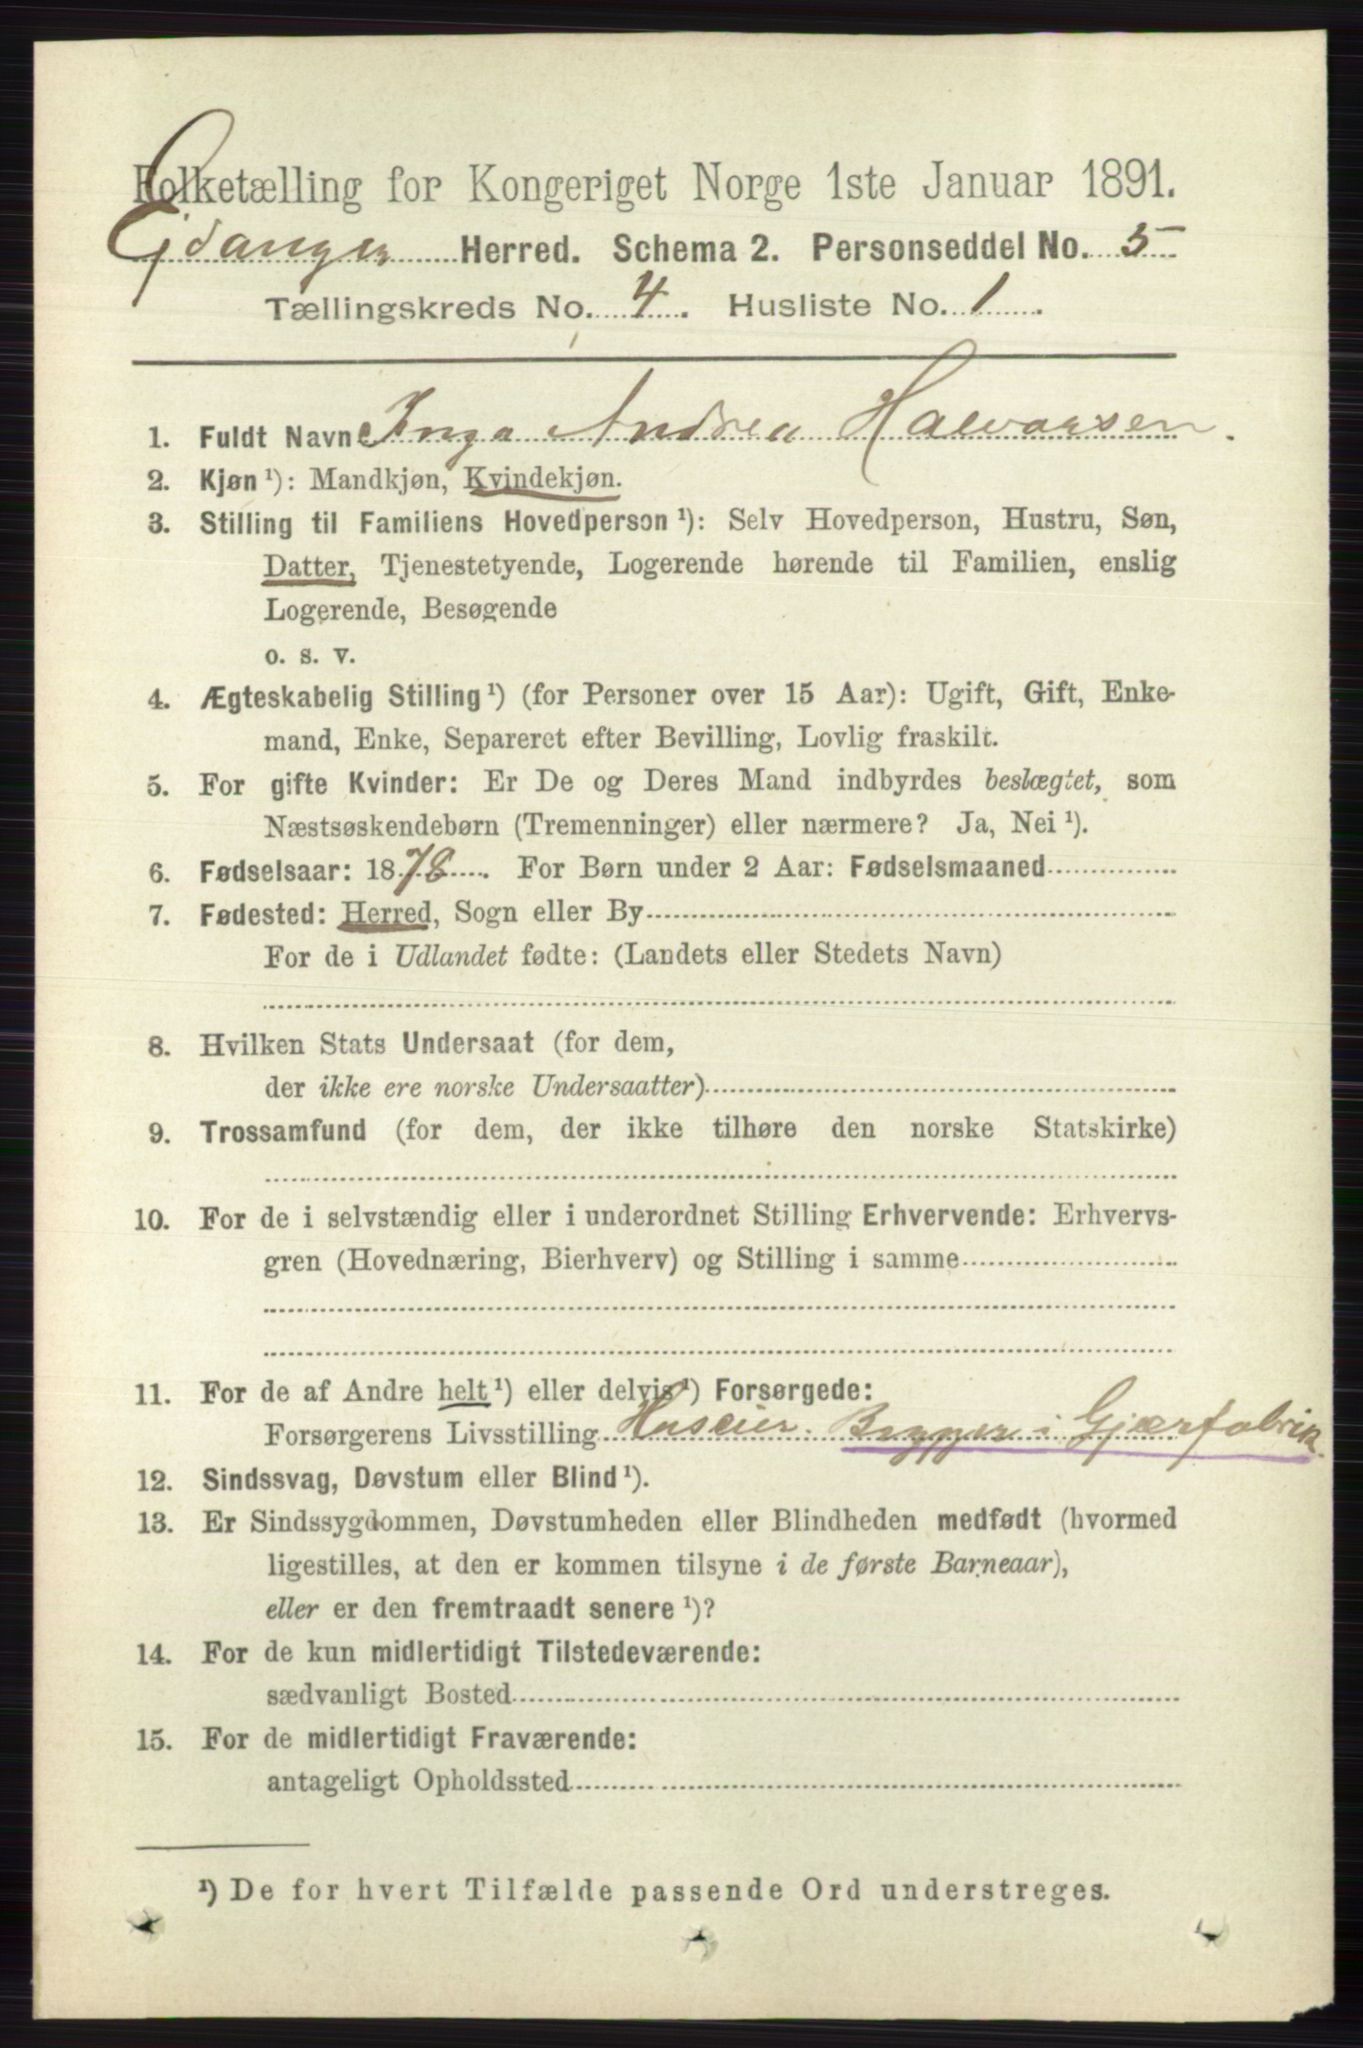 Folketælling for Kongeriget Norge 1ste Januar 1891.
Eidanger Herred. Schema 2. Personseddel No. 5
Tællingskreds No. 4. Husliste No. 1.
1. Fuldt Navn Inga Andrea Halvorsen.
2. Kjøn ¹): Mandkjøn, Kvindekjøn.
3. Stilling til Familiens Hovedperson ¹): Selv Hovedperson, Hustru, Søn,
Datter, Tjenestetyende, Logerende hørende til Familien, enslig
Logerende, Besøgende
o. s. v.
4. Ægteskabelig Stilling ¹) (for Personer over 15 Aar): Ugift, Gift, Enke-
mand, Enke, Separeret efter Bevilling, Lovlig fraskilt.
5. For gifte Kvinder: Er De og Deres Mand indbyrdes beslægtet, som
Næstsøskendebørn (Tremenninger) eller nærmere? Ja, Nei ¹).
6. Fødselsaar: 1878. For Børn under 2 Aar: Fødselsmaaned
7. Fødested: Herred, Sogn eller By
For de i Udlandet fødte: (Landets eller Stedets Navn)
8. Hvilken Stats Undersaat (for dem,
der ikke ere norske Undersaatter)
9. Trossamfund (for dem, der ikke tilhøre den norske Statskirke)
10. For de i selvstændig eller i underordnet Stilling Erhvervende: Erhvervs-
gren (Hovednæring, Bierhverv) og Stilling i samme
11. For de af Andre helt ¹) eller delvis ¹) Forsørgede:
Forsørgerens Livsstilling Huseier. Brygger i Gjærfabrik.
12. Sindssvag, Døvstum eller Blind ¹).
13. Er Sindssygdommen, Døvstumheden eller Blindheden medfødt (hvormed
ligestilles, at den er kommen tilsyne i de første Barneaar),
eller er den fremtraadt senere ¹)?
14. For de kun midlertidigt Tilstedeværende:
sædvanligt Bosted
15. For de midlertidigt Fraværende:
antageligt Opholdssted
¹) De for hvert Tilfælde passende Ord understreges.